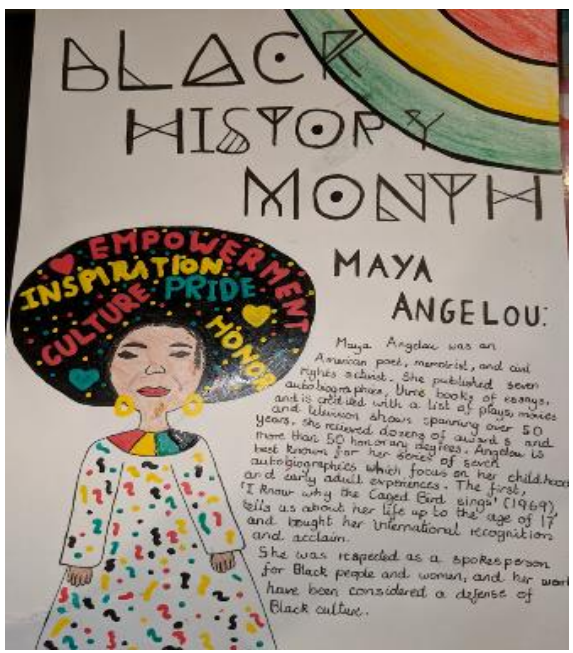 BLACK
HISTORY
MONTH
EMPOWERMENT
INSPIRATION
PRIDE
CULTURE
HONOR
MAYA
ANGELOU:
Maya Angelou was an
American poet, memoirist, and civil
rights activist. She published seven
autobiographies, three books of essays,
and is credited with a list of plays, movies
and television shows spanning over 50
years. she recieved dozens of awards and
more than 50 honorary degrees. Angelou is
best known for her series of seven
autobiographies which focus on her childhood
and early adult experiences. The first,
'I Know why the Caged Bird sings' (1969),
tells us about her life up to the age of 17
and bought her international recognition
and acclaim.
She was respected as a spokesperson
for Black people and women, and her work
have been considered a defense of
Black culture.